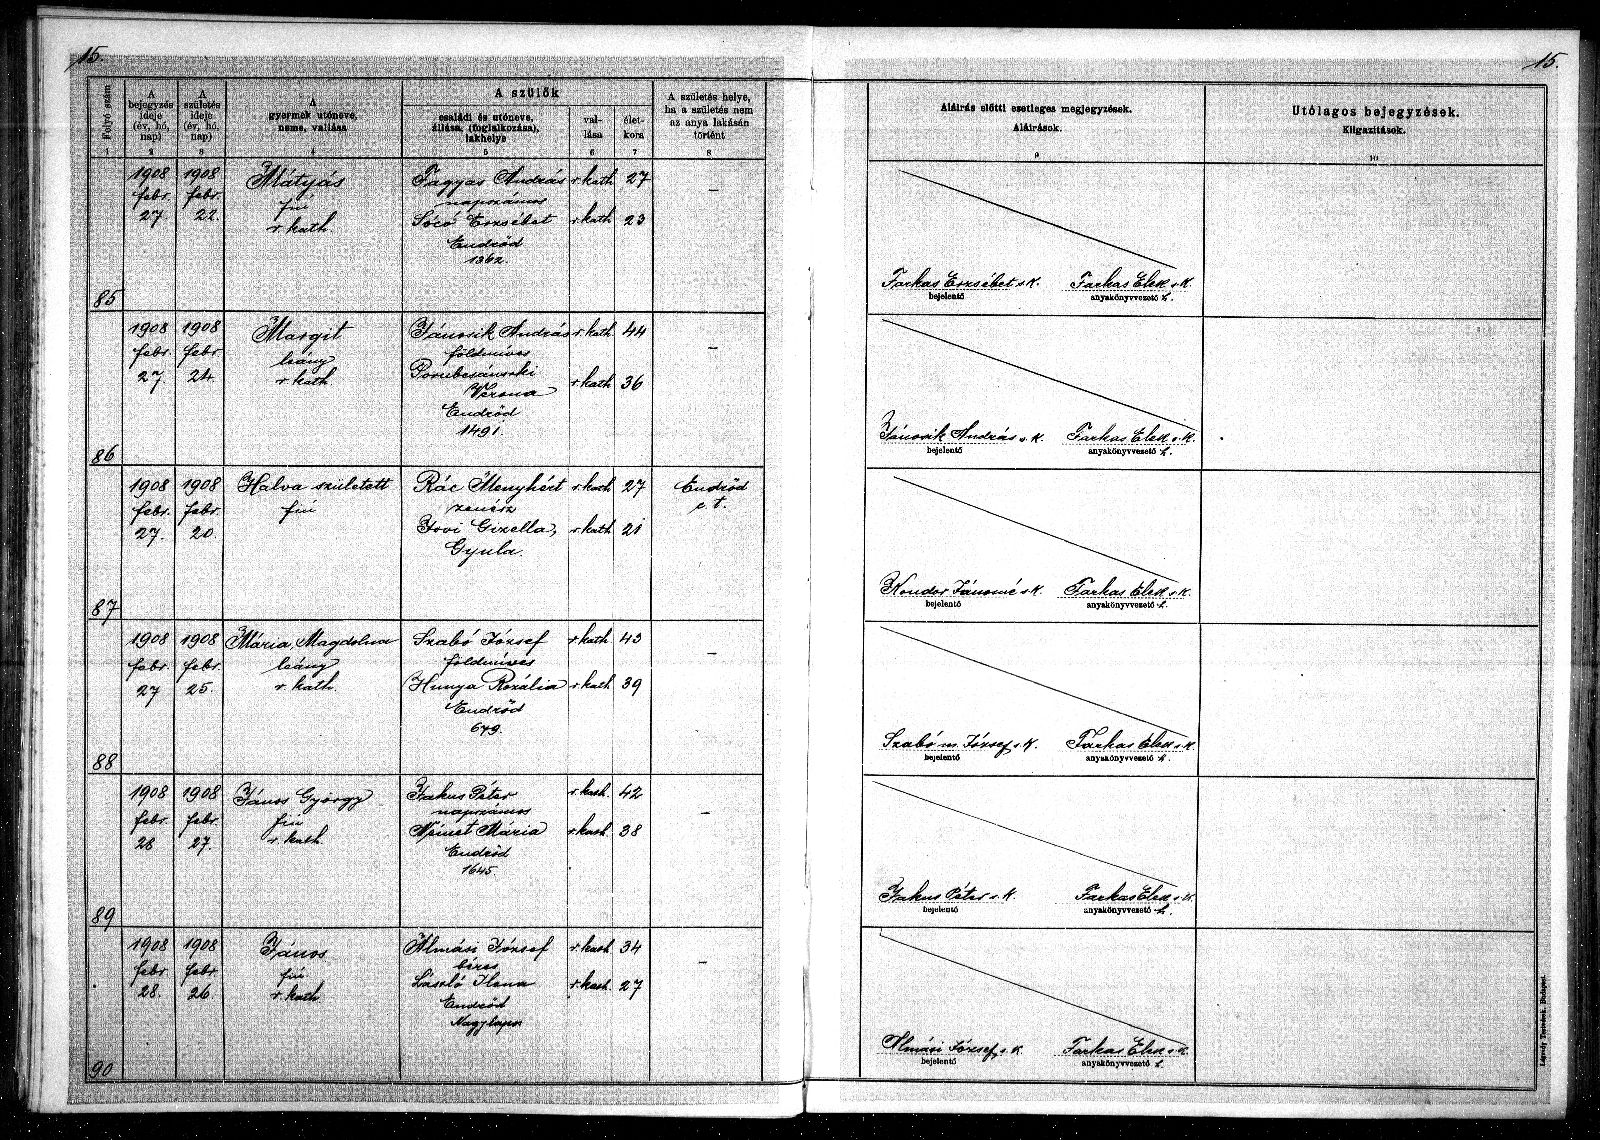 15.
15.
Folyó szám
A bejegyzés ideje (év, hó, nap)
A születés ideje (év, hó, nap)
A gyermek utóneve, neme, vallása
A szülők
családi és utóneve, állása, (foglalkozása), lakhelye
vallása
életkora
A születés helye, ha a születés nem az anya lakásán történt
Aláírás előtti esetleges megjegyzések.
Aláírások.
Utólagos bejegyzések.
Kiigazítások.
1 2 3 4 5 6 7 8 9 10
1908 1908 Mátyás Tagyas András r. kath 27 –
febr. febr. fiú napszámos
27 22. r. kath Sócó Erzsébet r. kath 23
Endrőd
1362.
85
Farkas Erzsébet s. k. Farkas Elek s. k.
bejelentő anyakönyvvezető h.
1908 1908 Margit Jánosik András r. kath 44 –
febr. febr. leány földmíves
27. 24. r. kath Porubcsánszki r. kath 36
Verona
Endrőd
1491.
86
Jánosik András s. k. Farkas Elek s. k.
bejelentő anyakönyvvezető h.
1908 1908 Halva született Rác Menyhért r. kath 27 Endrőd
febr. febr. fiú zenész c. t.
27. 20. Gizella, r. kath 21
Gyula.
87
Kondor Jánosné s. k. Farkas Elek s. k.
bejelentő anyakönyvvezető h.
1908 1908 Mária Magdolna Szabó József r. kath 43 –
febr. febr. leány földmíves
27 25. r. kath. Hunya Rozália r. kath 39
Endrőd
679.
88
Szabó m. József s. k. Farkas Elek s. k.
bejelentő anyakönyvvezető h.
1908 1908 János György Jakus Péter r. kath. 42 –
febr. febr. fiú napszámos
28 27. r. kath. Német Mária r. kath. 38
Endrőd
1645.
89
Jakus Péter s. k. Farkas Elek s. k.
bejelentő anyakönyvvezető h.
1908 1908 János Almási József r. kath. 34 –
febr. febr. fiú béres
28. 26. r. kath László Ilona r. kath. 27
Endrőd
Nagylapos
90
Almási József s. k. Farkas Elek s. k.
bejelentő anyakönyvvezető h.
Légrády Testvérek, Budapest.